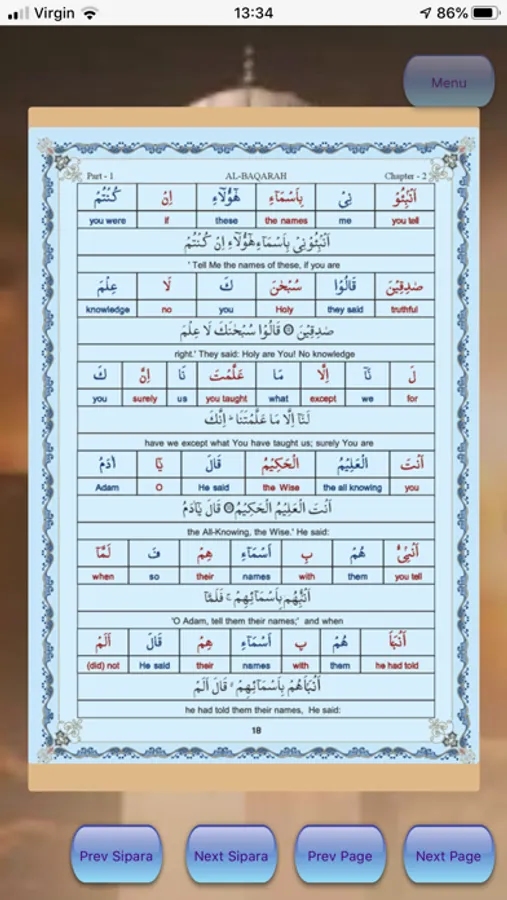 Virgin 13:34 86%
Menu
Part - 1 AL-BAQARAH Chapter - 2
اَنْۢبِـُٔوْ نِیْ بِاَسْمَآءِ هٰۤؤُلَآءِ اِنْ كُنْتُمْ
you tell me the names these if you were
اَنْۢبِـُٔوْنِیْ بِاَسْمَآءِ هٰۤؤُلَآءِ اِنْ كُنْتُمْ
' Tell Me the names of these, if you are
صٰدِقِیْنَ قَالُوْا سُبْحٰنَ كَ لَا عِلْمَ
truthful they said Holy you no knowledge
صٰدِقِیْنَ قَالُوْا سُبْحٰنَكَ لَا عِلْمَ
right.' They said: Holy are You! No knowledge
لَ نَاۤ اِلَّا مَا عَلَّمْتَ نَا اِنَّ كَ
for we except what you taught us surely you
لَنَاۤ اِلَّا مَا عَلَّمْتَنَا ؕ اِنَّكَ
have we except what You have taught us; surely You are
اَنْتَ الْعَلِیْمُ الْحَكِیْمُ قَالَ یٰۤا اٰدَمُ
you the all knowing the Wise He said O Adam
اَنْتَ الْعَلِیْمُ الْحَكِیْمُ قَالَ یٰۤاٰدَمُ
the All-Knowing, the Wise.' He said:
اَنْۢبِئْ هُمْ بِ اَسْمَآءِ هِمْ فَ لَمَّاۤ
you tell them with names their so when
اَنْۢبِئْهُمْ بِاَسْمَآئِهِمْ ۚ فَلَمَّاۤ
'O Adam, tell them their names;' and when
اَنْۢبَاَ هُمْ بِ اَسْمَآءِ هِمْ قَالَ اَلَمْ
he had told them with names their He said (did) not
اَنْۢبَاَهُمْ بِاَسْمَآئِهِمْ ۙ قَالَ اَلَمْ
he had told them their names, He said:
18
Prev Sipara Next Sipara Prev Page Next Page